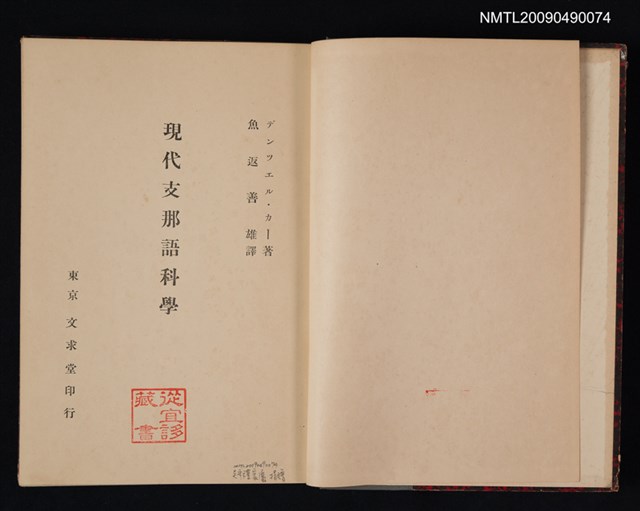 NMTL20090490074
デンツエル・カー著
魚返善雄譯
現代支那語科學
東京 文求堂印行
從宜誃
藏書